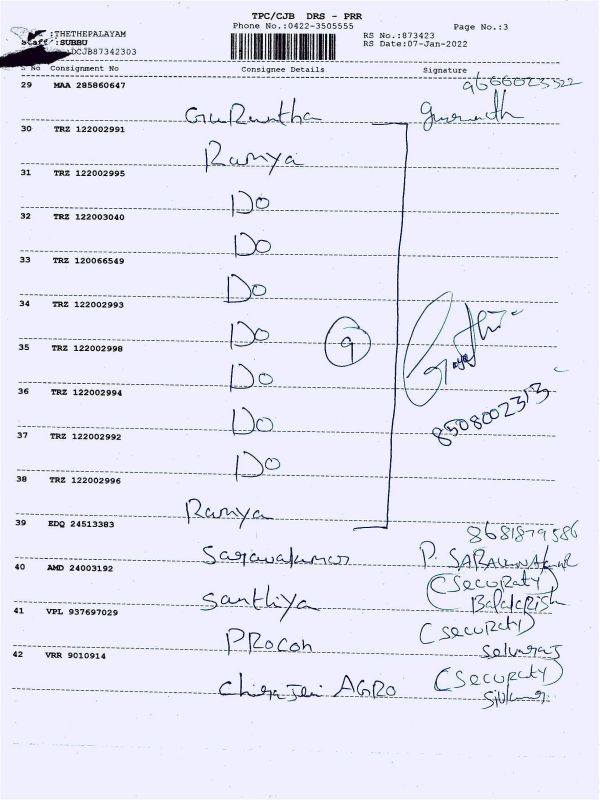 TPC/CJB DRS - PRR
Phone No.:0422-3505555 Page No.:3
:THETHEPALAYAM
Staff :SUBBU RS No.:873423
:DCJB87342303 RS Date:07-Jan-2022
S No Consignment No Consignee Details Signature
29 MAA 285860647
GuRuntha
30 TRZ 122002991
Ramya
31 TRZ 122002995
Do
32 TRZ 122003040
Do
33 TRZ 120066549
Do
34 TRZ 122002993
Do 9
35 TRZ 122002998
Do
36 TRZ 122002994 8508002313
Do
37 TRZ 122002992
Do
38 TRZ 122002996
Ramya
39 EDQ 24513383 8681879586
Saravakumar
40 AMD 24003192 (Securaty)
Santhiya
41 VPL 937697029 (securaty)
PRocon Selvaraj
42 VRR 9010914 (Securaty)
AGRO